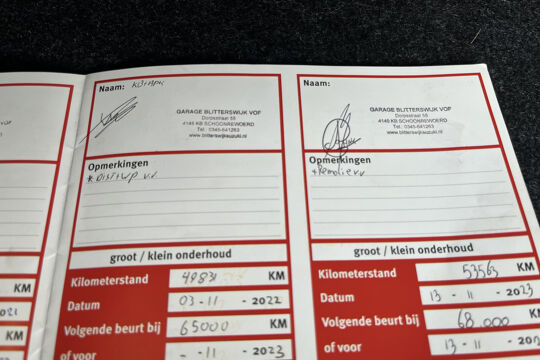 Naam:
GARAGE BLITTERSWIJK VOF
Dorpsstraat 58
4145 KB SCHOONREWOERD
Tel.: 0345-641263
www.blitterswijksuzuki.nl
Opmerkingen
groot / klein onderhoud
Kilometerstand KM
Datum 03-11-2022
Volgende beurt bij 65000 KM
of voor - 11 - 2023
Naam:
GARAGE BLITTERSWIJK VOF
Dorpsstraat 58
4145 KB SCHOONREWOERD
Tel.: 0345-641263
www.blitterswijksuzuki.nl
Opmerkingen
groot / klein onderhoud
Kilometerstand 53563 KM
Datum 13-11-2023
Volgende beurt bij 68.000 KM
of voor 13 - 11 -
KM
KM